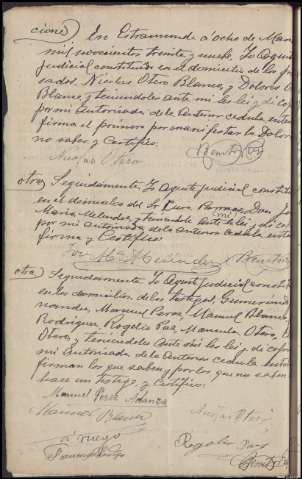 cione) En Estramundi a ocho de Mar
mil novecientos treinta y nueve. Yo Agen
judicial constituido en el domicilio de los
sados. Nicolas Otero Blanco, y Dolores O
Blanco, y teniendoles ante mi les leí y di cop
por mi autorizada de la anterior cedula ente
firma el primero por manifestar la Dolor
no saber, y Certifico.
Nicolas Otero
otra) Seguidamente Yo Agente judicial constitui
en el domicilio del Sr Cura Parroco Don Jo
Maria Melendez y teniendole ante mi le leí y di cop
por mi autorizada de la anterior cedula
firma y Certifico
Jose Mª Melendez
otra) Seguidamente Yo Agente judicial constitui
en los domicilios de los testigos,
Manuel Perez, Manuel Blanco
Rodriguez, Rogelio Paz, Manuela Otero,
Otero, y teniendoles ante mi les leí y di copia
mi autorizada de la anterior cedula
firman los que saben y por los que no saben
hace un testigo, y Certifico:
Manuel Perez
Manuel Blanco
Nicolas Otero
a ruego
Rogelio Paz